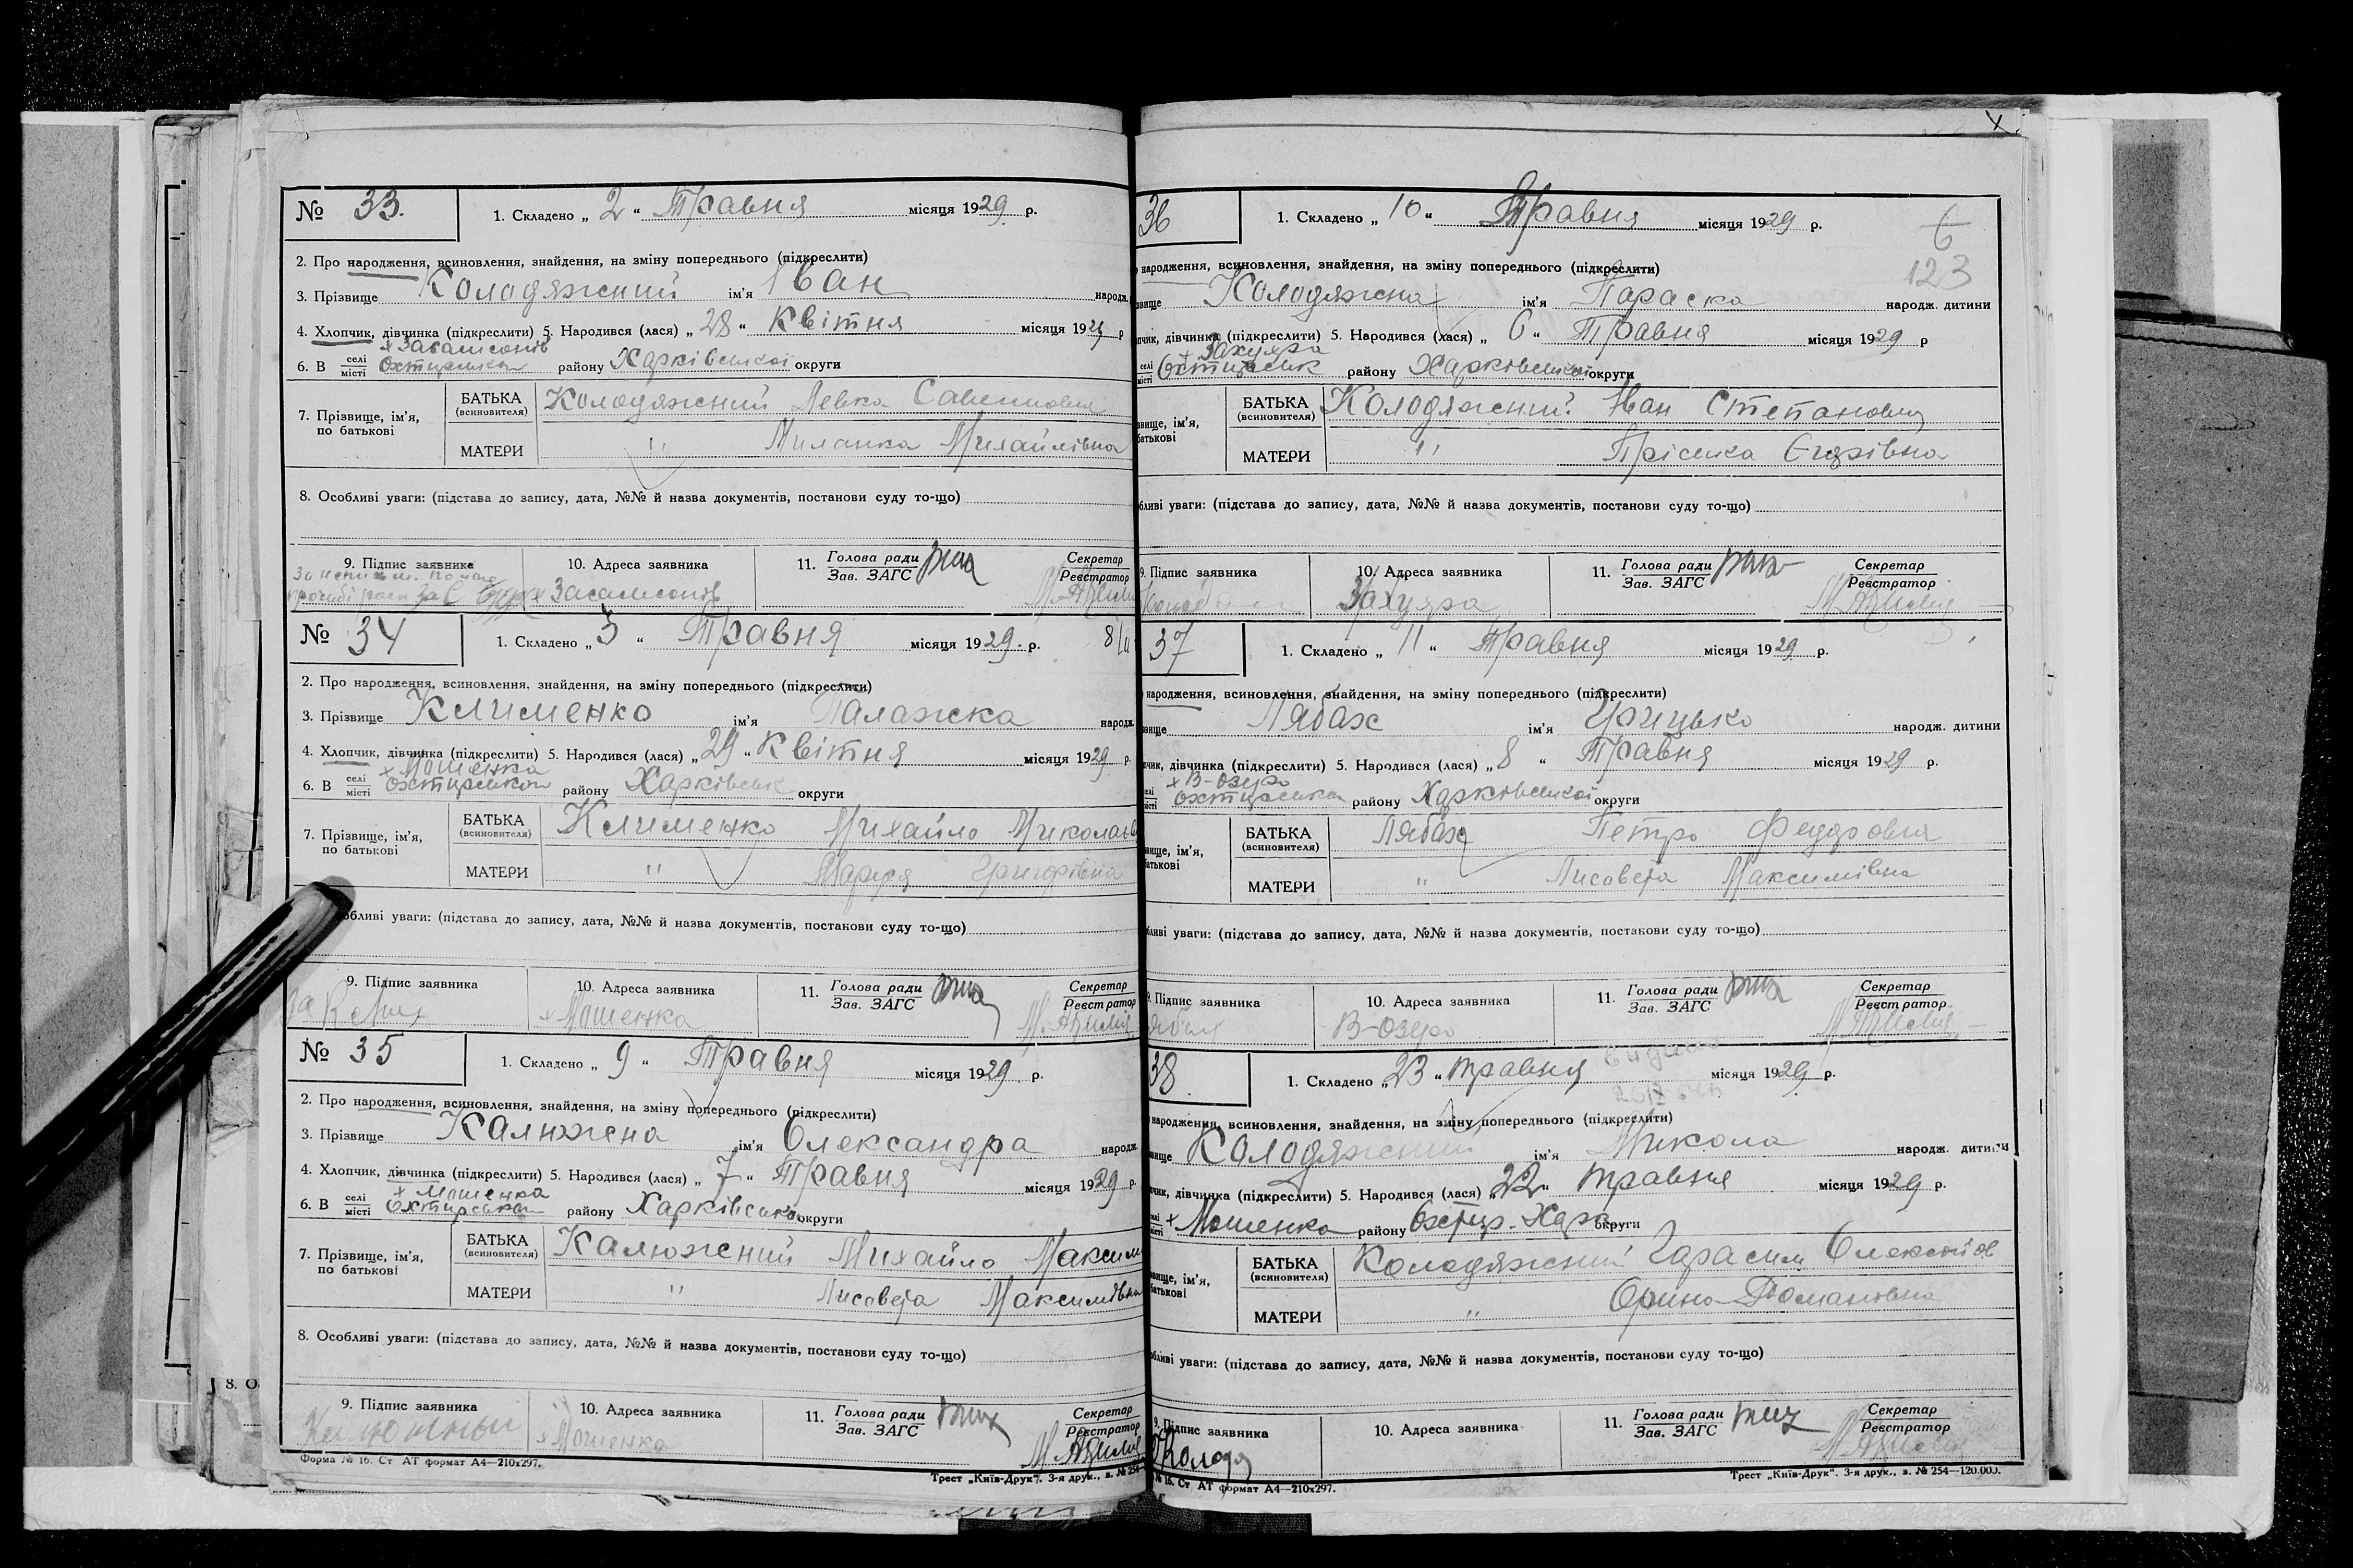 № 33. 1. Складено „ 2 “ Травня місяця 1929. р.
2. Про народження, всиновлення, знайдення, на зміну попереднього (підкреслити)
3. Прізвище Колодяжний ім'я Іван народж.
4. Хлопчик, дівчинка (підкреслити) 5. Народився (лася) „ 28 “ Квітня місяця 1929 р
6. В селі місті Охтирськом району Харківської округи
7. Прізвище, ім'я, по батькові
БАТЬКА (всиновителя) Колодяжний Левко
МАТЕРИ " Миланка Михайлівна
8. Особливі уваги: (підстава до запису, дата, №№ й назва документів, постанови суду то-що)
9. Підпис заявника 10. Адреса заявника 11. Голова ради Зав. ЗАГС Секретар Реєстратор
№ 34 1. Складено „ 5 “ Травня місяця 1929. р.
2. Про народження, всиновлення, знайдення, на зміну попереднього (підкреслити)
3. Прізвище Клименко ім'я Палажка народж.
4. Хлопчик, дівчинка (підкреслити) 5. Народився (лася) „ 29 “ Квітня місяця 1929 р.
х Мошенка
6. В селі місті Охтирськом району Харківськ округи
7. Прізвище, ім'я, по батькові
БАТЬКА (всиновителя) Клименко Михайло
МАТЕРИ " Маруся Григорівна
обливі уваги: (підстава до запису, дата, №№ й назва документів, постанови суду то-що)
9. Підпис заявника 10. Адреса заявника 11. Голова ради Зав. ЗАГС Секретар Реєстратор
х Мошенка
№ 35 1. Складено „ 9 “ Травня місяця 1929. р.
2. Про народження, всиновлення, знайдення, на зміну попереднього (підкреслити)
3. Прізвище Калюжна ім'я Олександра народж.
4. Хлопчик, дівчинка (підкреслити) 5. Народився (лася) „ 7 “ Травня місяця 1929 р.
х Мошенка
6. В селі місті Охтирськом району Харківської округи
7. Прізвище, ім'я, по батькові
БАТЬКА (всиновителя) Калюжний Михайло Максим
МАТЕРИ " Лисавета Максимівна
8. Особливі уваги: (підстава до запису, дата, №№ й назва документів, постанови суду то-що)
9. Підпис заявника 10. Адреса заявника 11. Голова ради Зав. ЗАГС Секретар Реєстратор
х Мошенка
Форма № 16. Ст АТ формат А4—210х297.
Трест „Київ-Друк“. 3-я друк., з. № 254
36 1. Складено „ 10 “ Травня місяця 1929 р.
6
123
народження, всиновлення, знайдення, на зміну попереднього (підкреслити)
Колодяжна ім'я Параска народж. дитини
дівчинка (підкреслити) 5. Народився (лася) „ 6 “ Травня місяця 1929 р
селі місті Охтирськ району Харківської округи
БАТЬКА (всиновителя) Колодяжний Іван Степанович
МАТЕРИ " Пріська
уваги: (підстава до запису, дата, №№ й назва документів, постанови суду то-що)
9. Підпис заявника 10. Адреса заявника 11. Голова ради Зав. ЗАГС Секретар Реєстратор
37 1. Складено „ 11 “ Травня місяця 1929 р.
народження, всиновлення, знайдення, на зміну попереднього (підкреслити)
Лябах ім'я Грицько народж. дитини
дівчинка (підкреслити) 5. Народився (лася) „ 8 “ Травня місяця 1929 р.
х В-Озеро
Охтирськом району Харківської округи
БАТЬКА (всиновителя) Лябах Петро Федорович
МАТЕРИ " Лисавета Максимівна
уваги: (підстава до запису, дата, №№ й назва документів, постанови суду то-що)
9. Підпис заявника 10. Адреса заявника 11. Голова ради Зав. ЗАГС Секретар Реєстратор
В-Озеро
38. 1. Складено „ 23 “ травня місяця 1929. р.
народження, всиновлення, знайдення, на зміну попереднього (підкреслити)
Колодяжний ім'я Микола народж. дитини
дівчинка (підкреслити) 5. Народився (лася) „ 22 “ травня місяця 1929 р.
х Мошенка району Охтир. Харк округи
БАТЬКА (всиновителя) Колодяжний Гарасим Олексійов
МАТЕРИ " Орина Романовна
уваги: (підстава до запису, дата, №№ й назва документів, постанови суду то-що)
9. Підпис заявника 10. Адреса заявника 11. Голова ради Зав. ЗАГС Секретар Реєстратор
Колодя
№ 16. Ст АТ формат А4—210х297.
Трест „Київ-Друк“. 3-я друк., з. № 254—120.000.